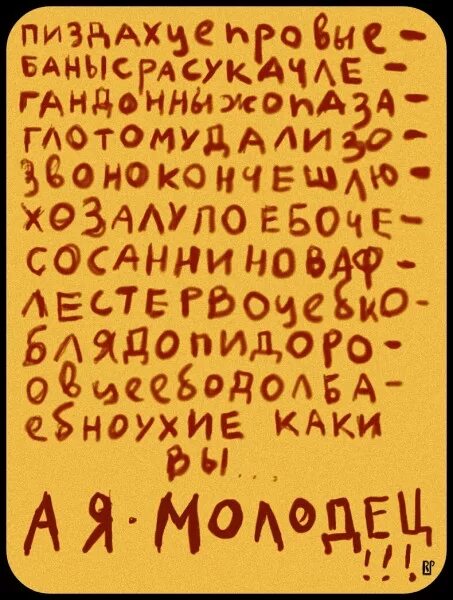 ПИЗДАХУЕПРОВЫЕ-
БАНЫСРАСУКАЧЛЕ-
ГАНДОННЫЖОПАЗА-
ГЛОТОМУДАЛИЗО-
ЗВОНОКОНЧЕШЛЮ-
ХОЗАЛУПОЕБОЧЕ-
СОСАННИНОВАФ-
ЛЕСТЕРВОЦЕБКО-
БЛЯДОПИДОРО-
ОВЦЕЕБОДОЛБА-
ЕБНОУХИЕ КАКИ
ВЫ...,
А Я-МОЛОДЕЦ
!!!